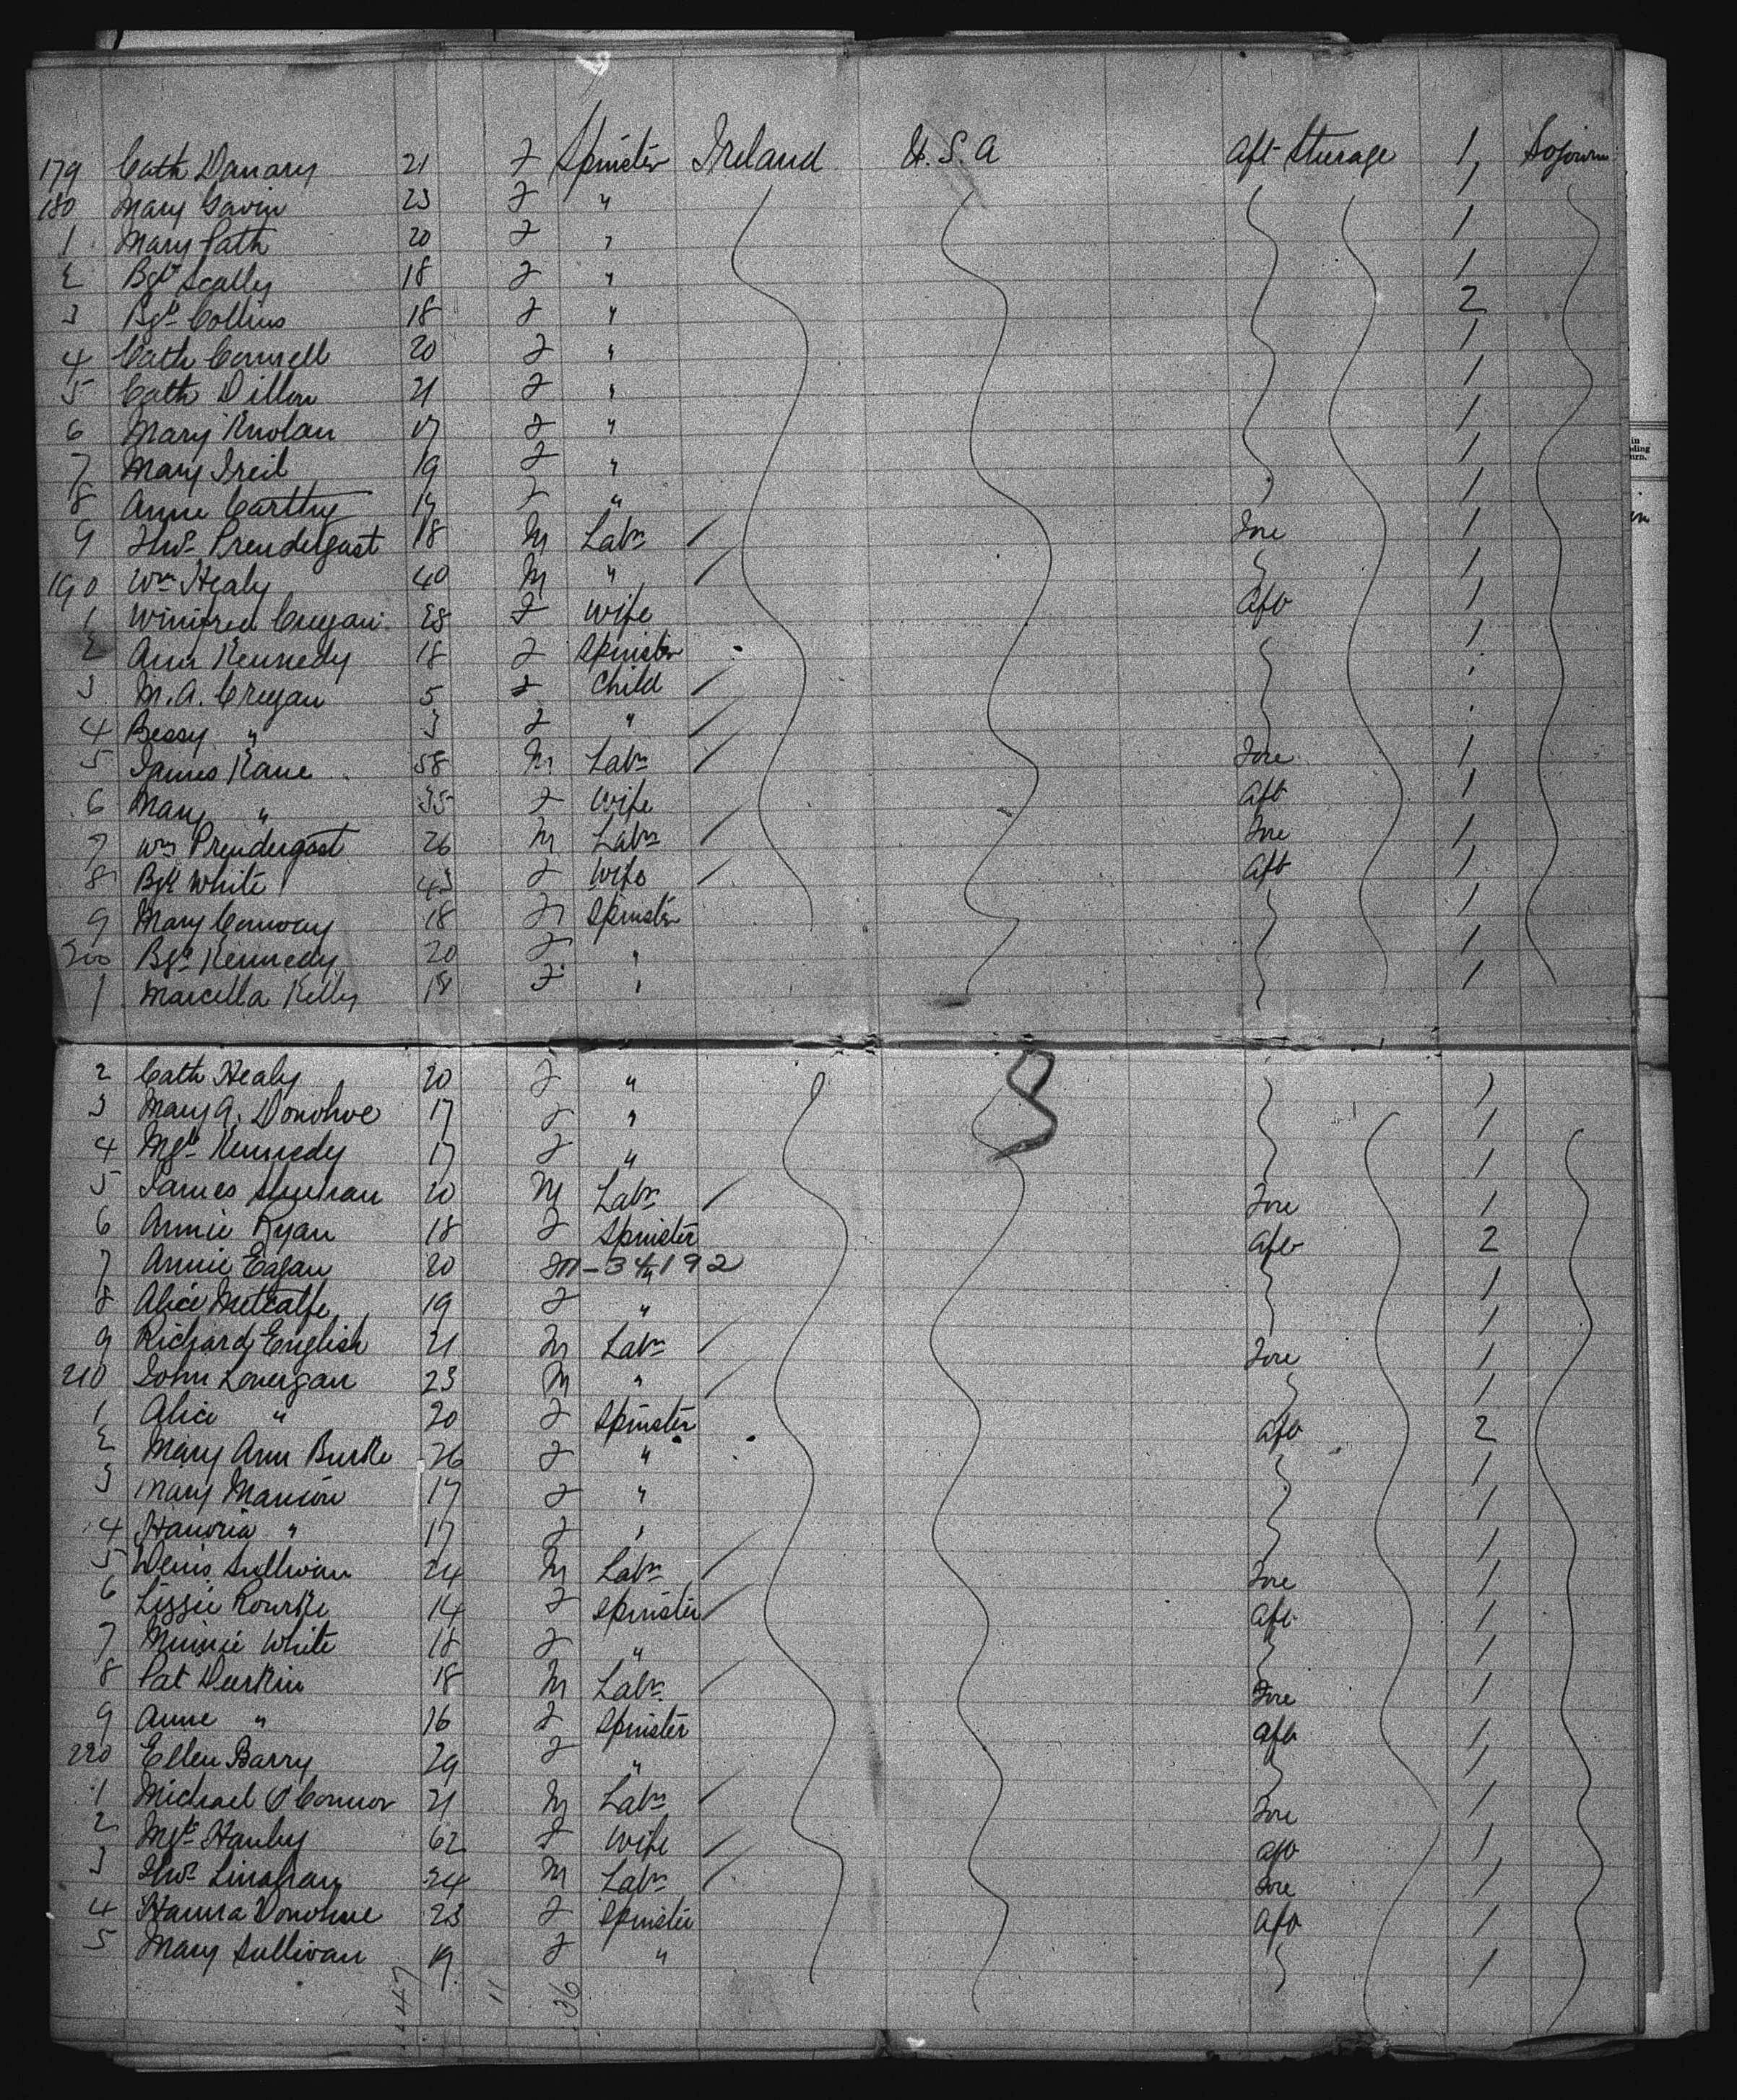 179 Cath Danary 21 F Spinster Ireland U.S.A Aft Sturage 1 Sojourn
180 Mary Gavin 23 F " 1
1 Mary Fath 20 F " 1
2 Bgt Scally 18 F " 1
3 Bgt Collins 18 F " 2
4 Cath Connell 20 F " 1
5 Cath Dillon 21 F " 1
6 Mary Knolan 17 F " 1
7 Mary Freil 19 F " 1
8 Anne Carthy 19 F " 1
9 Thos Prendergast 18 M Labr Fore 1
190 Wm Healy 40 M " 1
1 Winifred Cregan 28 F Wife Aft 1
2 Ann Kennedy 18 F Spinster 1
3 M. A. Cregan 5 F Child
4 Bessy " 3 F "
5 James Kane 58 M Labr Fore 1
6 Mary " 35 F Wife Aft 1
7 Wm Prendergast 26 M Labr Fore 1
8 Bgt White 43 F Wife Aft 1
9 Mary Conway 18 F Spinster 1
200 Bgt Kennedy 20 F " 1
1 Marcella Kelly 18 F " 1
8
2 Cath Healy 20 F " 1
3 Mary A. Donohoe 17 F " 1
4 Mgt Kennedy 17 F " 1
5 James Sheehan 20 M Labr Fore 1
6 Annie Ryan 18 F Spinster Aft 2
7 Annie Eagan 20 " 1
8 Alice Metcalfe 19 F " 1
9 Richard English 21 M Labr Fore 1
210 John Lonergan 23 M " 1
1 Alice " 20 F Spinster Aft 2
2 Mary Ann Burke 26 F " 1
3 Mary Mansion 17 F " 1
4 Hanoria " 17 F " 1
5 Denis Sullivan 24 M Labr Fore 1
6 Lizzie Rourke 14 F Spinster Aft 1
7 Minnie White 18 F " 1
8 Pat Durkin 18 M Labr Fore 1
9 Anne " 16 F Spinster Aft 1
220 Ellen Barry 29 F " 1
1 Michael O'Connor 21 M Labr Fore 1
2 Mgt Hanby 62 F Wife Aft 1
3 Thos Linahan 24 M Labr Fore 1
4 Hanna Donohue 23 F Spinster Aft 1
5 Mary Sullivan 19 F " 1
47 11 36